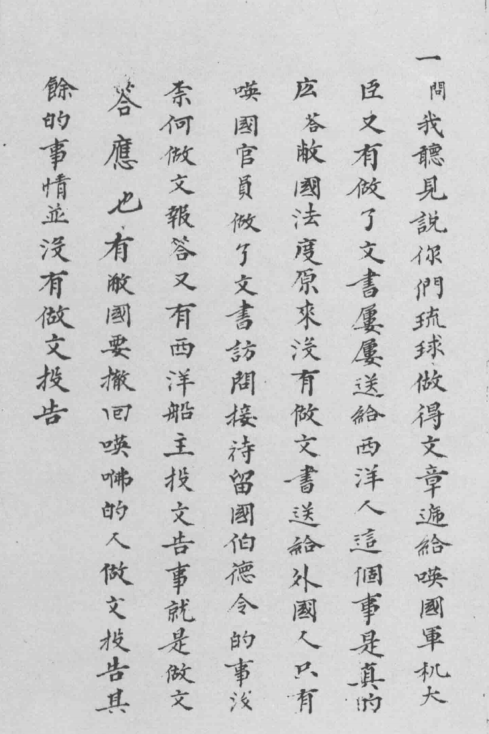 一問我聽見說你們琉球做得文章遞給㖫國軍机大
臣又有做了文書屢屢送給西洋人這個事是真的
庅答敝國法度原來沒有做文書送給外國人只有
㖫國官員做了文書訪問接待留國伯德令的事沒
柰何做文報答又有西洋船主投文告事就是做文
答應也有敝國要撤回㖫咈的人做文投告其
餘的事情並沒有做文投告